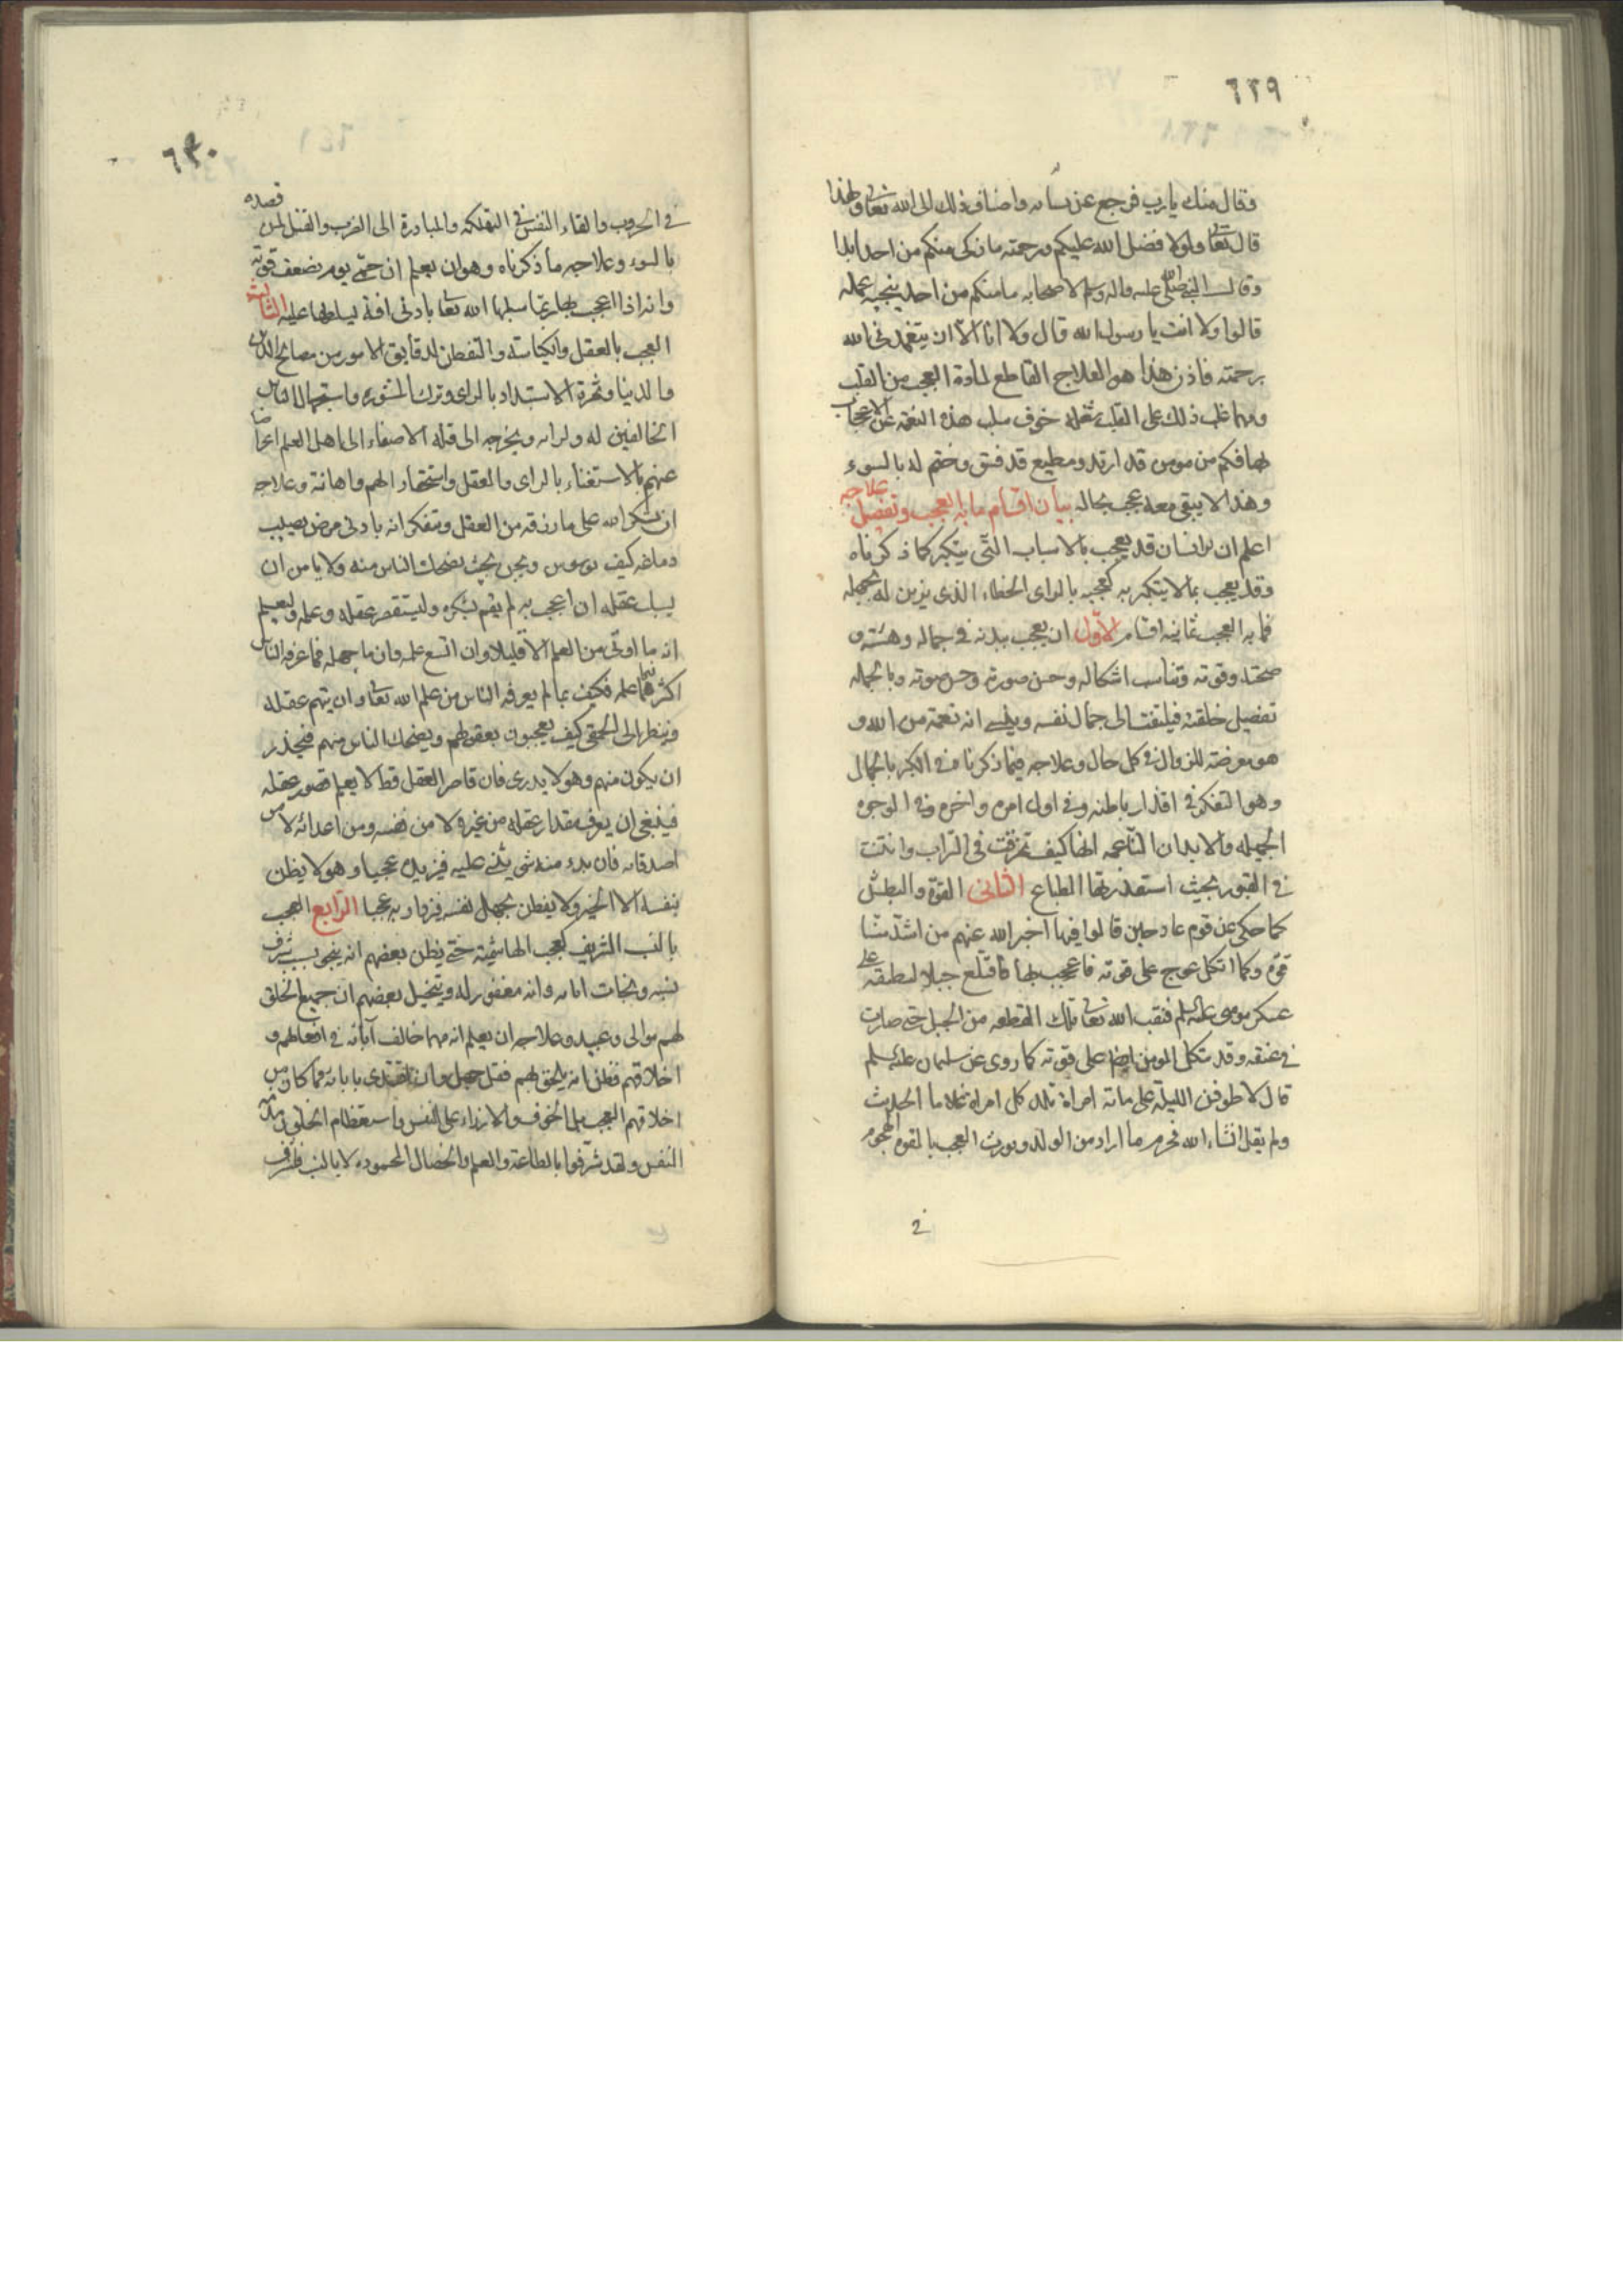 ٦٢٩
وقال منك يا رب فرجع عن نسيانه واضاف ذلك الى الله تعالى ولهذا
قال تعالى ولولا فضل الله عليكم ورحمته ما زكى منكم من احد ابدا
وقال النبي صلى الله عليه واله وسلم لاصحابه ما منكم من احد ينجيه عمله
قالوا ولا انت يا رسول الله قال ولا انا الا ان يتغمدنى الله
برحمته فاذن هذا هو العلاج القاطع لمادة العجب من القلب
ومهما غلب ذلك على القلب شغله خوف سلب هذه النعمة عن الاعجاب
بها فكم من مومن قد ارتد ومطيع قد فسق وختم له بالسوء
وهذا لا يبقى معه عجب بحاله بيان اقسام ما به العجب وتفصيل علاجه
اعلم ان الانسان قد يعجب بالاسباب التى يتكبر كما ذكرناه
وقد يعجب بما لا يتكبر به كعجبه بالراى الخطاء الذى يزين له بجهله
فما به العجب ثمانية اقسام الاول ان يعجب ببدنه فى جماله وهيئته و
صحته وقوته وتناسب اشكاله وحسن صورته وحسن صوته وبالجملة
تفصيل خلقته فيلتفت الى جمال نفسه وينسى انه نعمة من الله و
هو معرضة للزوال فى كل حال وعلاجه فيما ذكرنا فى الكبر بالجمال
وهو التفكر فى اقذار باطنه وفى اول امره واخره وفى الوجوه
الجميلة والابدان الناعمة انها كيف تمزقت فى التراب وانتنت
فى القبور بحيث استقذرتها الطباع الثانى القوة والبطش
كما حكى عن قوم عاد حين قالوا فيما اخبر الله عنهم من اشد منا
قوة وكما اتكل عوج على قوته فاعجب بها فاقتلع جبلا ليطبقه على
عسكر موسى عليه السلم فنقب الله تعالى تلك القطعة من الجبل حتى صارت
فى عنقه وقد يتكل المومن ايضا على قوته كما روى عن سليمان عليه السلم
قال لاطوفن الليلة على مائة امراة تلد كل امراة غلاما الحديث
ولم يقل انشاء الله فحرم ما اراد من الولد ويورث العجب بالقوة الهجوم
فى
٦٣٠
فى الحروب والقاء النفس فى التهلكة والمبادرة الى الضرب والقتل لمن قصده
بالسوء وعلاجه ما ذكرناه وهو ان يعلم ان حمى يوم يضعف قوته
وانه اذا اعجب بها ربما سلبها الله تعالى بادنى افة يسلطها عليه الثالث
العجب بالعقل والكياسة والتفطن لدقايق الامور من مصالح الدين
والدنيا وثمرة الاستبداد بالراى وترك المشورة واستجهال الناس
المخالفين له ولرايه ويخرجه الى قلة الاصغاء الى اهل العلم اعراضا
عنهم بالاستغناء بالراى والعقل واستحقارا لهم واهانة وعلاجه
ان يشكر الله على ما رزقه من العقل ويتفكر انه بادنى مرض يصيب
دماغه كيف يوسوس ويجن بحيث يضحك الناس منه ولا يامن ان
يسلب عقله ان اعجب به لم يقم بشكره وليستقصر عقله وعلمه وليعلم
انه ما اوتى من العلم الا قليلا وان اتسع علمه وان ما جهله مما عرفه الناس
اكثر مما علمه فكيف بما لم يعرفه الناس من علم الله تعالى وان يتهم عقله
وينظر الى الحمقى كيف يعجبون بعقولهم ويضحك الناس منهم فيحذر
ان يكون منهم وهو لا يدرى فان قاصر العقل قط لا يعلم قصور عقله
فينبغى ان يعرف مقدار عقله من غيره لا من نفسه ومن اعدائه لا من
اصدقائه فان بدء منه شى يثنى عليه فيزيده عجبا وهو لا يظن
بنفسه الا الخير ولا يفطن بجهل نفسه فيزداد به عجبا الرابع العجب
بالنسب الشريف كعجب الهاشمية حتى يظن بعضهم انه ينجو بسبب شرف
نسبه ونجات ابائه وانه مغفور له ويتخيل بعضهم ان جميع الخلق
لهم موالى وعبيد وعلاجه ان يعلم انه مهما خالف آبائه فى افعالهم و
اخلاقهم فظن انه يلحق بهم فقد جهل وان يقتدى بابائه فما كان من
اخلاقهم العجب بل الخوف والازراء على النفس واستعظام الخلق ومذمة
النفس ولقد شرفوا بالطاعة والعلم والخصال المحمودة لا بالنسب فليشرف